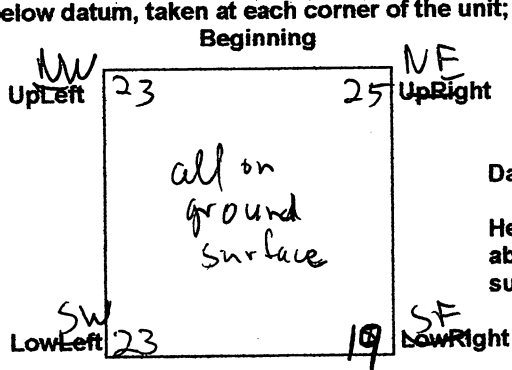 elow datum, taken at each corner of the unit;
Beginning
NW NE
UpLeft 23 25 UpRight
all on
ground
surface
Da
He
ab
su
SW SE
LowLeft 23 19 LowRight